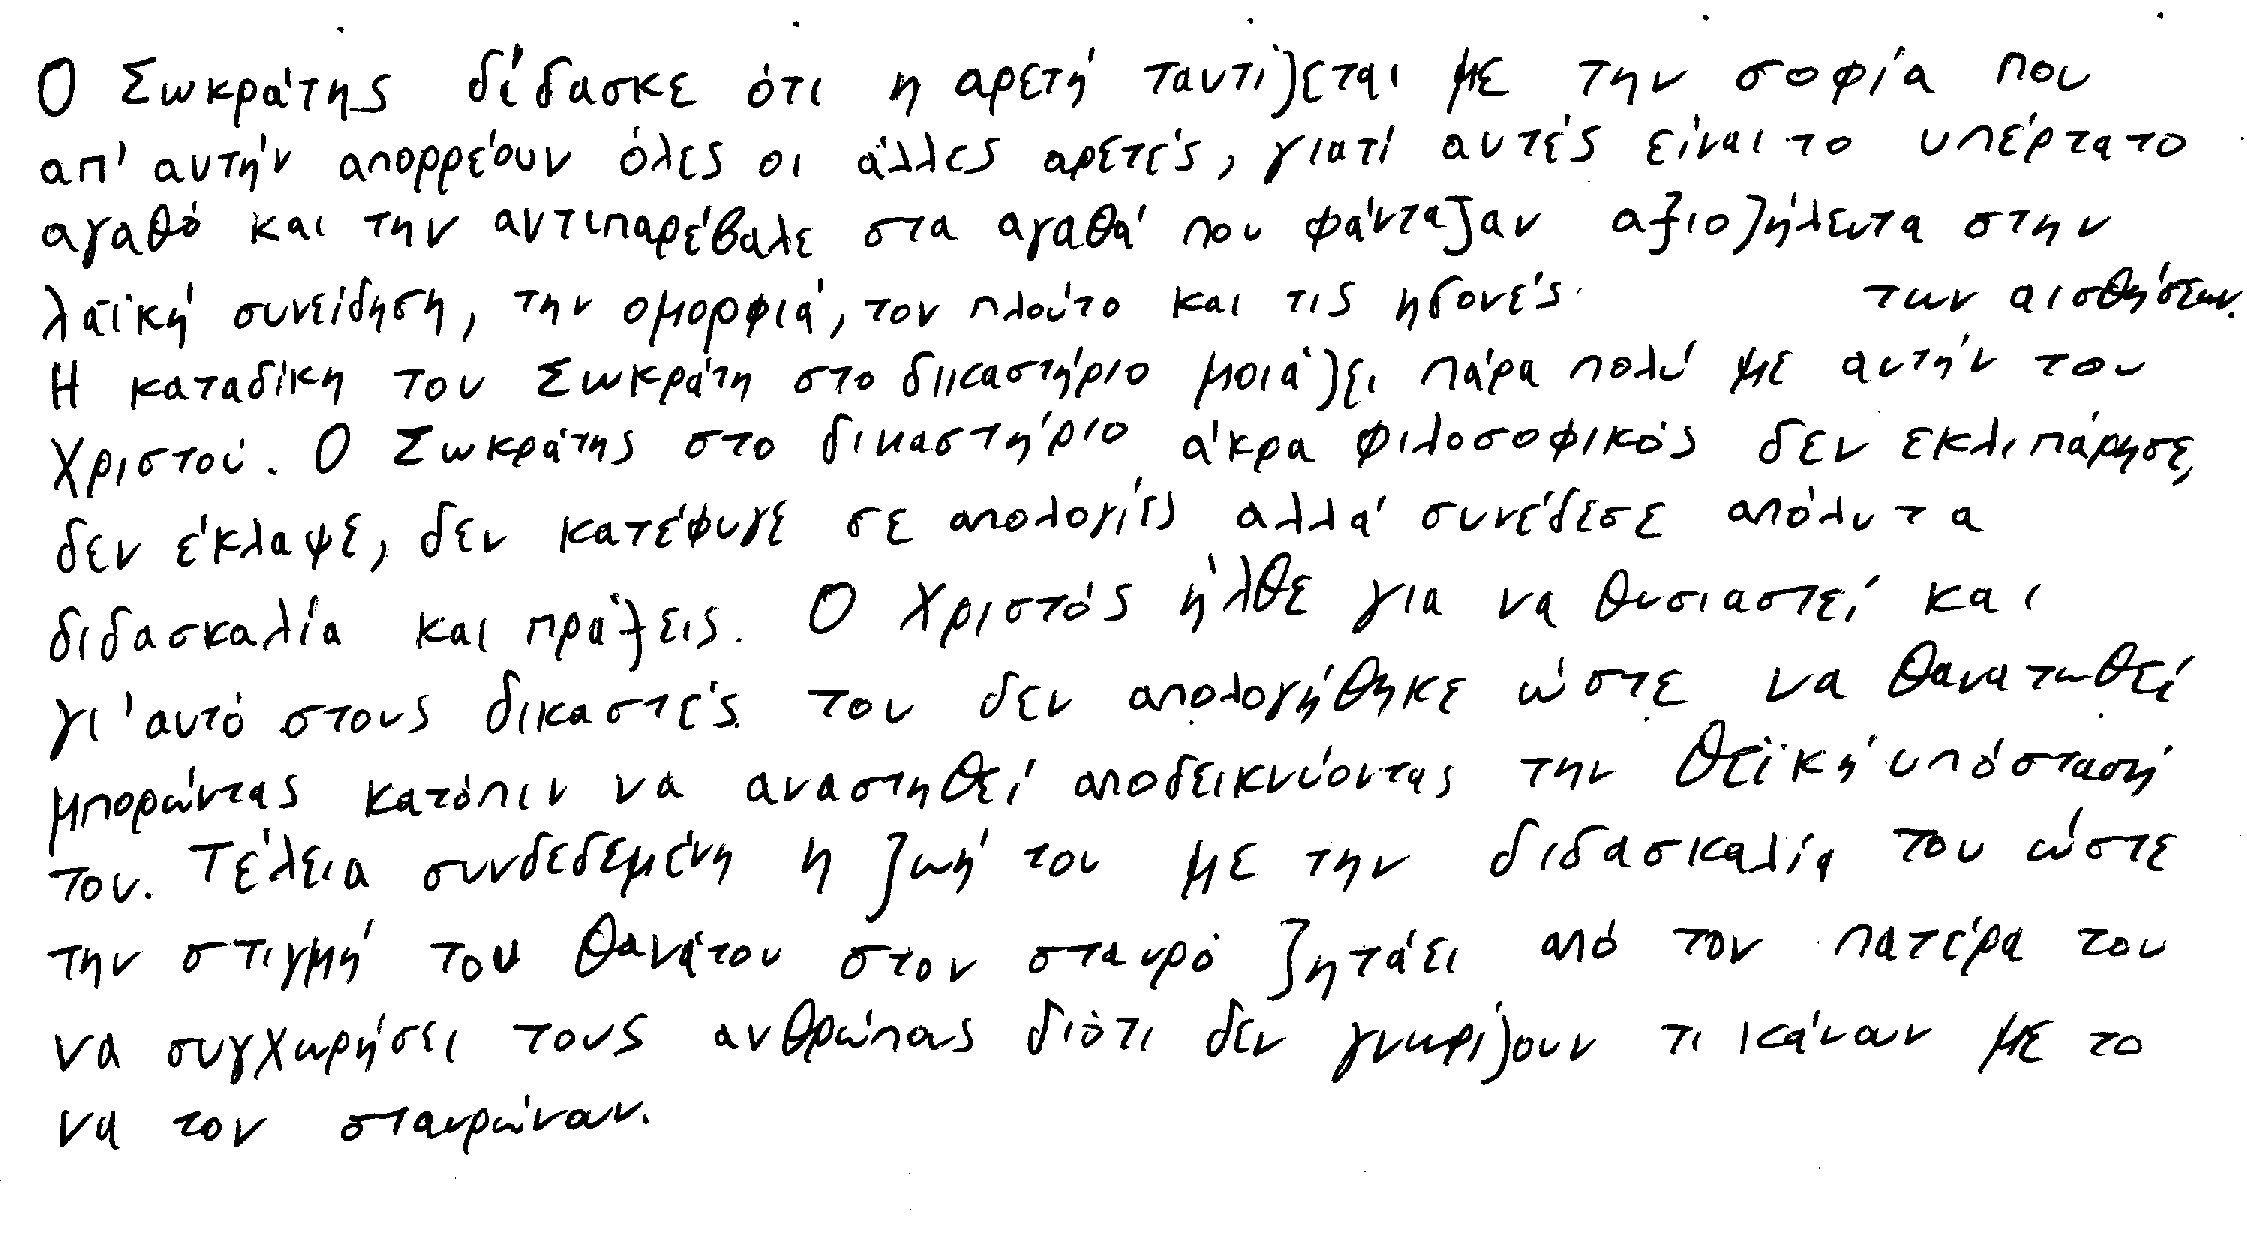 Ο Σωκράτης δίδασκε ότι η αρετή ταυτίζεται με την σοφία που
απ' αυτήν απορρέουν όλες οι άλλες αρετές, γιατί αυτές είναι το υπέρτατο
αγαθό και την αντιπαρέβαλε στα αγαθά που φάνταζαν αξιοζήλευτα στην
λαϊκή συνείδηση, την ομορφιά, τον πλούτο και τις ηδονές των αισθήσεων.
Η καταδίκη του Σωκράτη στο δικαστήριο μοιάζει πάρα πολύ με αυτήν του
Χριστού. Ο Σωκράτης στο δικαστήριο άκρα φιλοσοφικός δεν εκλιπάρησε,
δεν έκλαψε, δεν κατέφυγε σε απολογίες αλλά συνέδεσε απόλυτα
διδασκαλία και πράξεις. Ο Χριστός ήλθε για να θυσιαστεί και
γι' αυτό στους δικαστές του δεν απολογήθηκε ώστε να θανατωθεί
μπορώντας κατόπιν να αναστηθεί αποδεικνύοντας την θεϊκή υπόστασή
του. Τέλεια συνδεδεμένη η ζωή του με την διδασκαλία του ώστε
την στιγμή του θανάτου στον σταυρό ζητάει από τον πατέρα του
να συγχωρήσει τους ανθρώπους διότι δεν γνωρίζουν τι κάνουν με το
να τον σταυρώνουν.